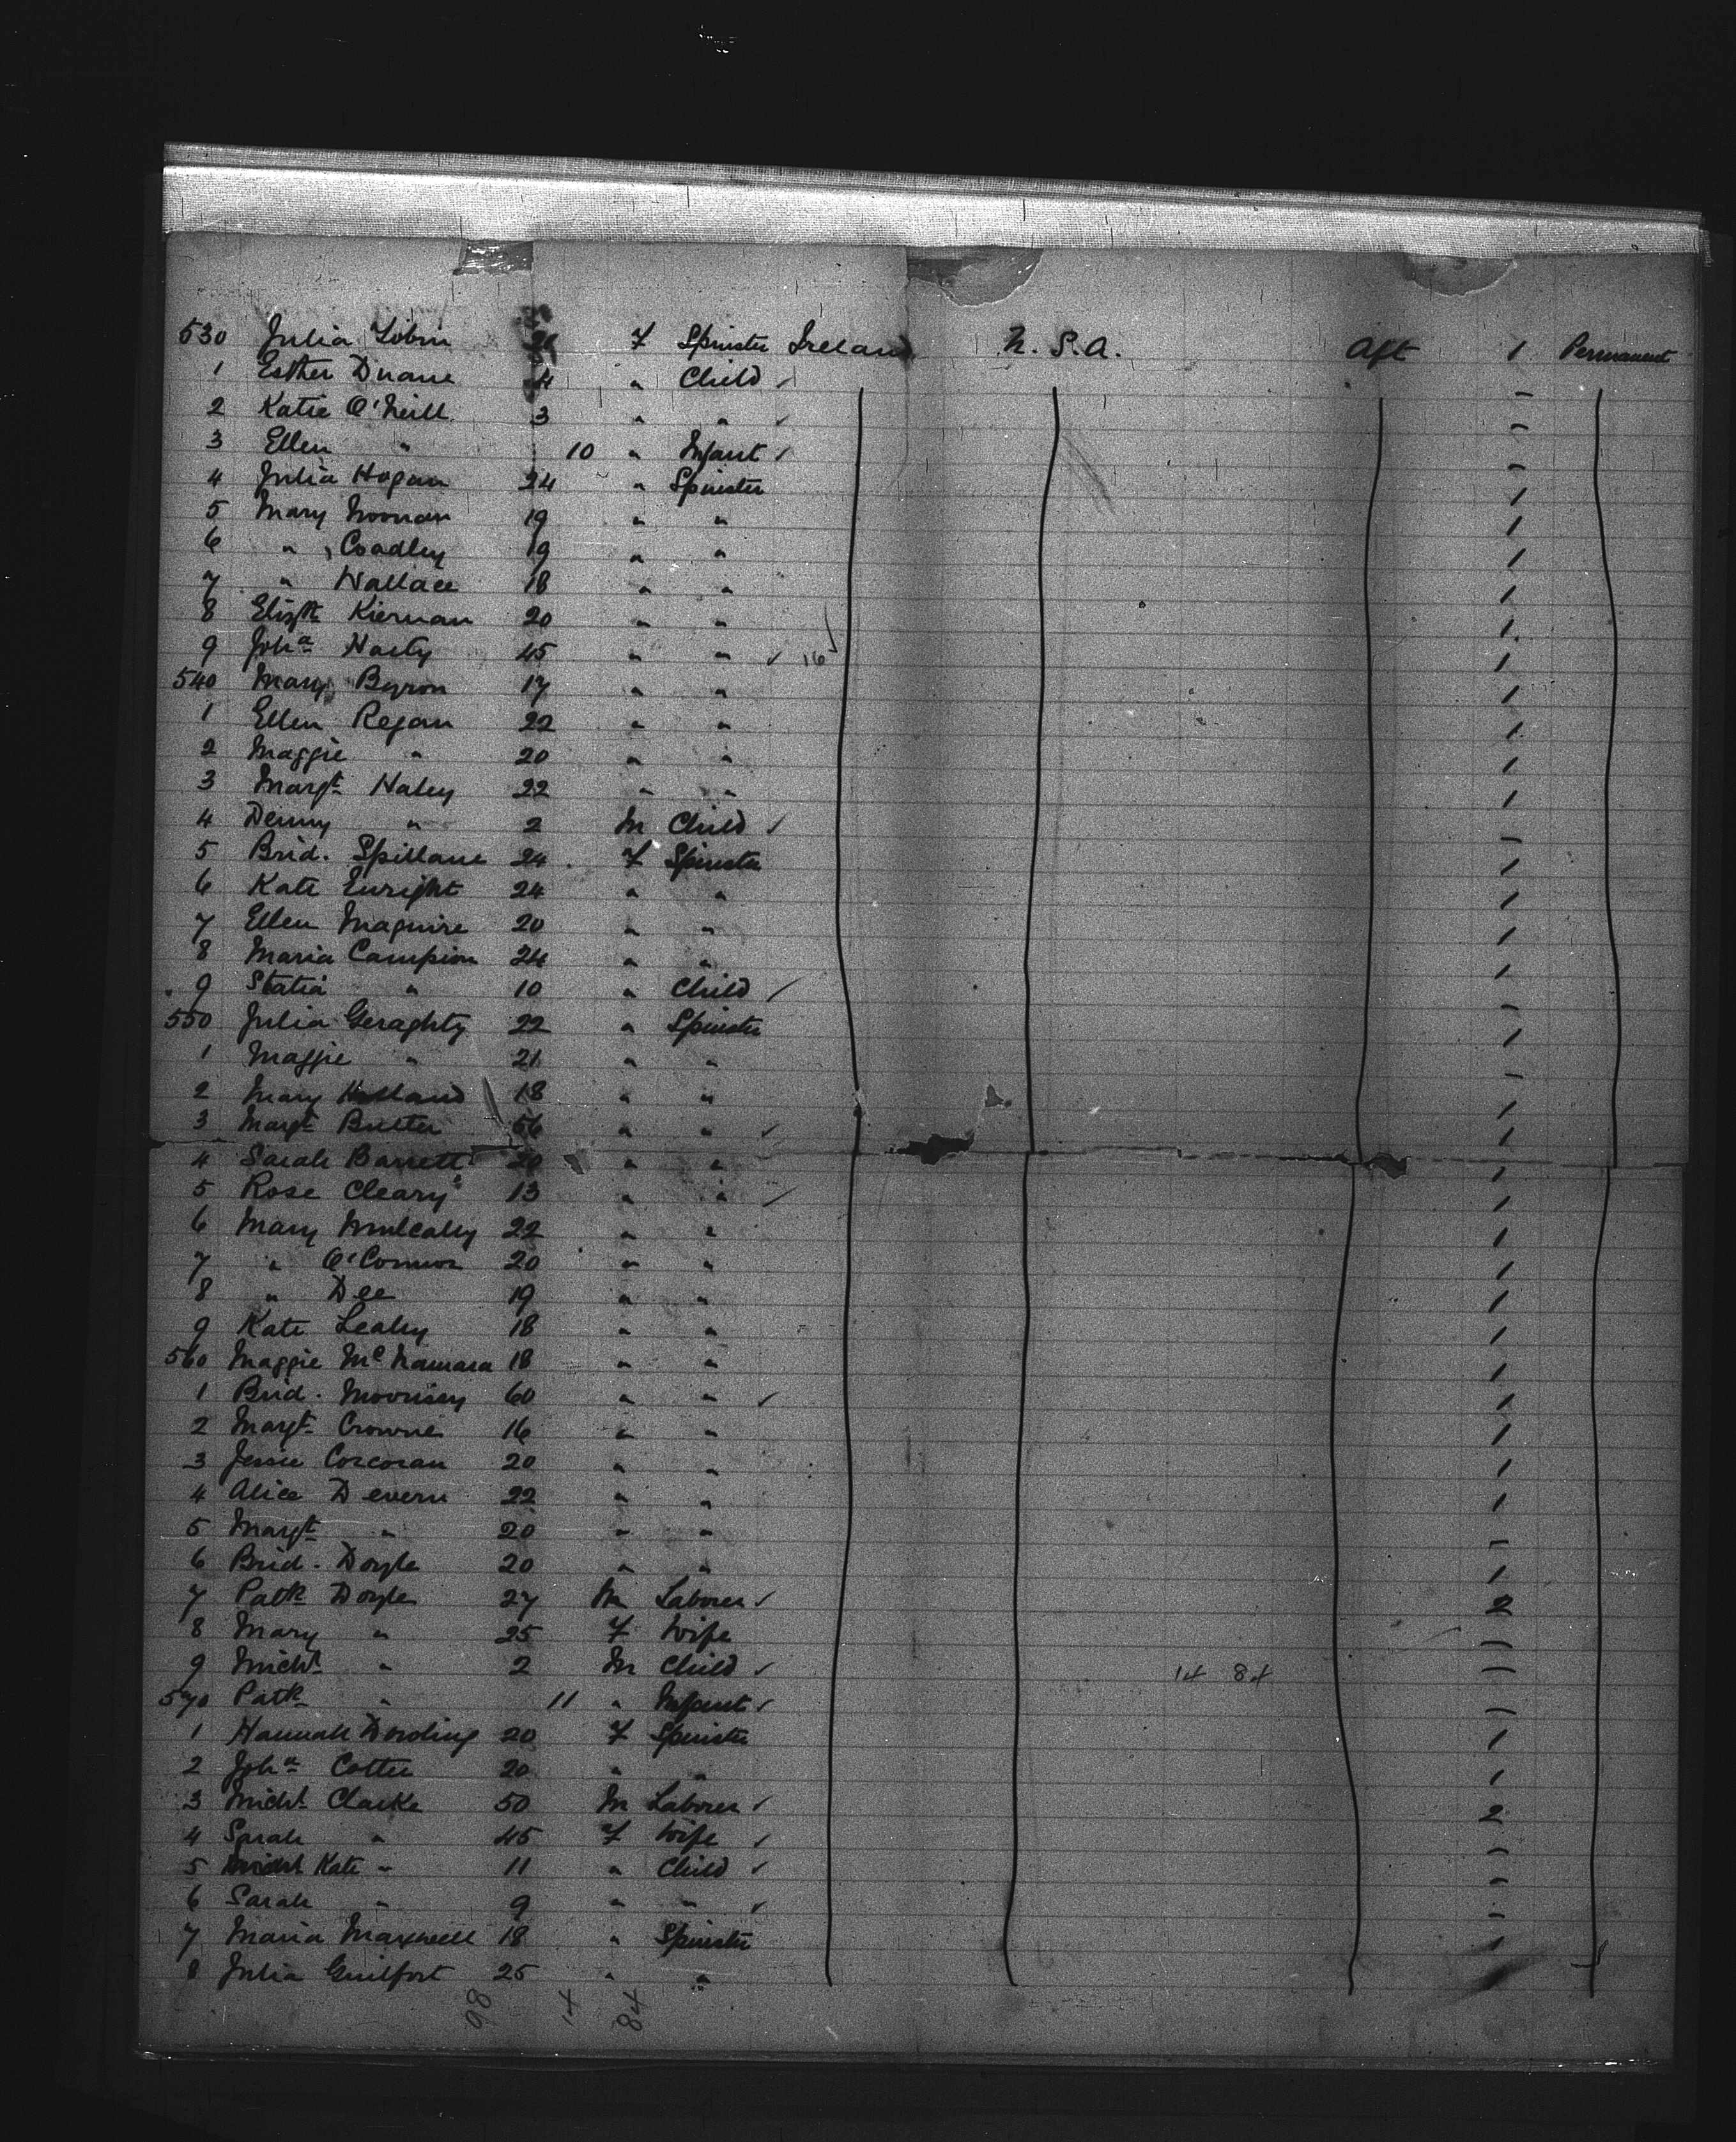 530 Julia Tobin F Spinster Ireland U.S.A. Aft 1 Permanent
1 Esther Duane 4 " Child ✓ –
2 Katie O'Neill 3 " " ✓ –
3 Ellen " 10 " Infant ✓ –
4 Julia Hogan 24 " Spinster 1
5 Mary Noonan 19 " " 1
6 " Coadley 19 " " 1
7 " Wallace 18 " " 1
8 Elizth Kiernan 20 " " 1
9 Joha Hasty 45 " " ✓ 16 1
540 Mary Byron 17 " " 1
1 Ellen Regan 22 " " 1
2 Maggie " 20 " " 1
3 Margt Haley 22 " " 1
4 Denny " 2 M Child ✓ –
5 Brid. Spillane 24 F Spinster 1
6 Kate Enright 24 " " 1
7 Ellen Maguire 20 " " 1
8 Maria Campion 24 " " 1
9 Statia " 10 " Child ✓ –
550 Julia Geraghty 22 " Spinster 1
1 Maggie " 21 " " –
2 Mary Holland 18 " " 1
3 Margt Butler 56 " " ✓ 1
4 Sarah Barrett 20 " " 1
5 Rose Cleary 13 " " ✓ 1
6 Mary Mulcahy 22 " " 1
7 " O'Connor 20 " " 1
8 " Dee 19 " " 1
9 Kate Leahy 18 " " 1
560 Maggie McNamara 18 " " 1
1 Brid. Morrisey 60 " " ✓ 1
2 Margt Crowne 16 " " 1
3 Jessie Corcoran 20 " " 1
4 Alice Devern 22 " " 1
5 Margt " 20 " " –
6 Brid. Doyle 20 " " 1
7 Patk Doyle 27 M Laborer ✓ 2
8 Mary " 25 F Wife –
9 Michl " 2 M Child ✓ 14 84 –
570 Patk " 11 " Infant ✓ –
1 Hannah Dowling 20 F Spinster 1
2 Joha Cotter 20 " " 1
3 Michl Clarke 50 M Laborer ✓ 2
4 Sarah " 45 F Wife ✓ –
5 Kate " 11 " Child ✓ –
6 Sarah " 9 " " ✓ –
7 Maria Maxwell 18 " Spinster 1
8 Julia Guilfort 25 " "
98 14 84